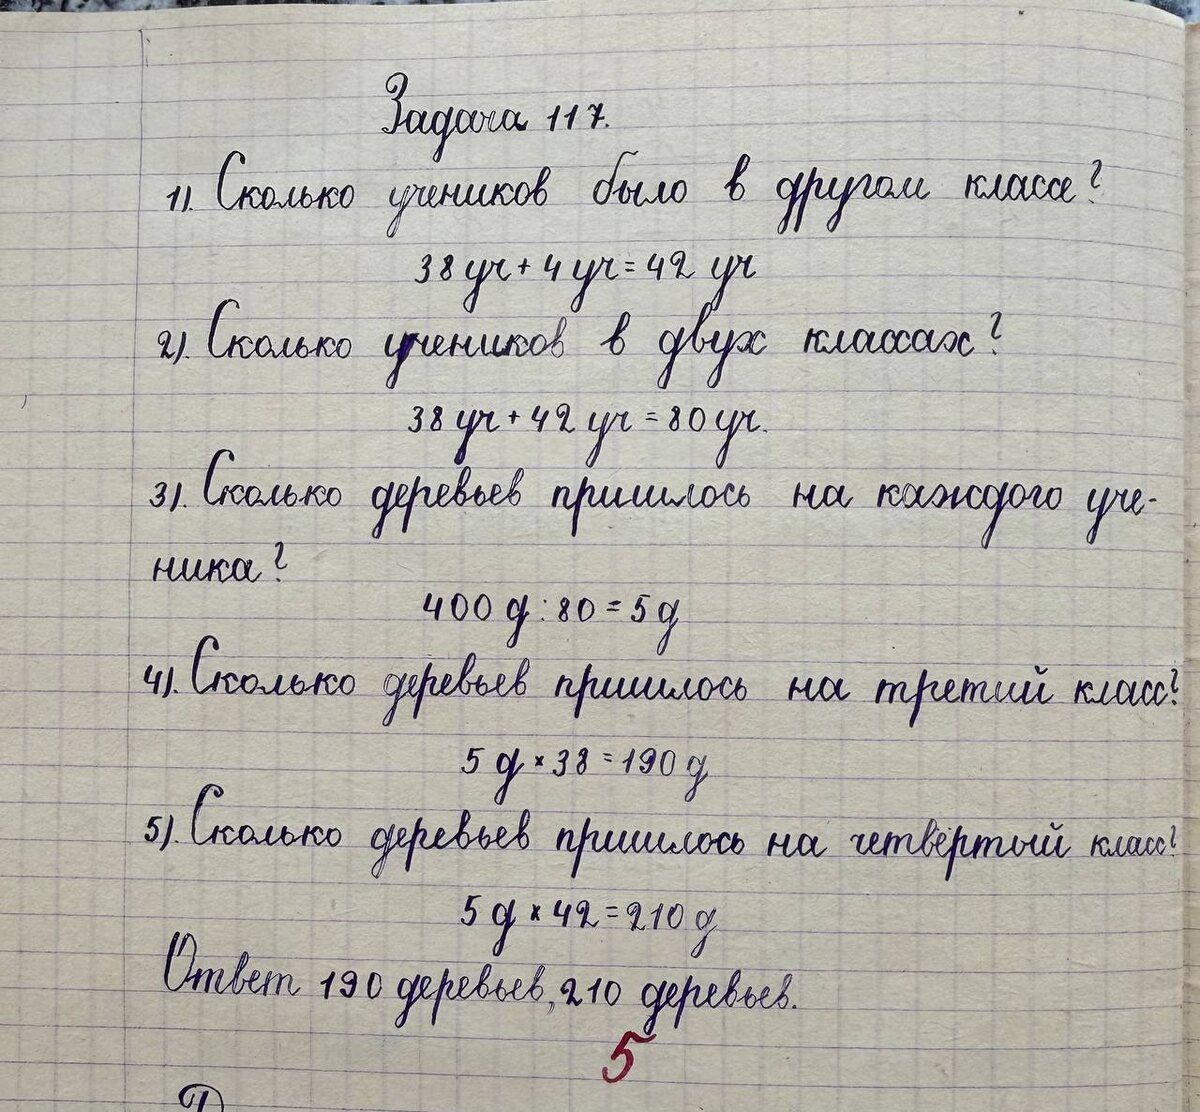 Задача 117.
1). Сколько учеников было в другом классе?
38 уч + 4 уч = 42 уч
2). Сколько учеников в двух классах?
38 уч + 42 уч = 80 уч.
3). Сколько деревьев пришлось на каждого уче-
ника?
400 д : 80 = 5 д
4). Сколько деревьев пришлось на третий класс?
5 д × 38 = 190 д
5). Сколько деревьев пришлось на четвёртый класс?
5 д × 42 = 210 д
Ответ 190 деревьев, 210 деревьев.
5